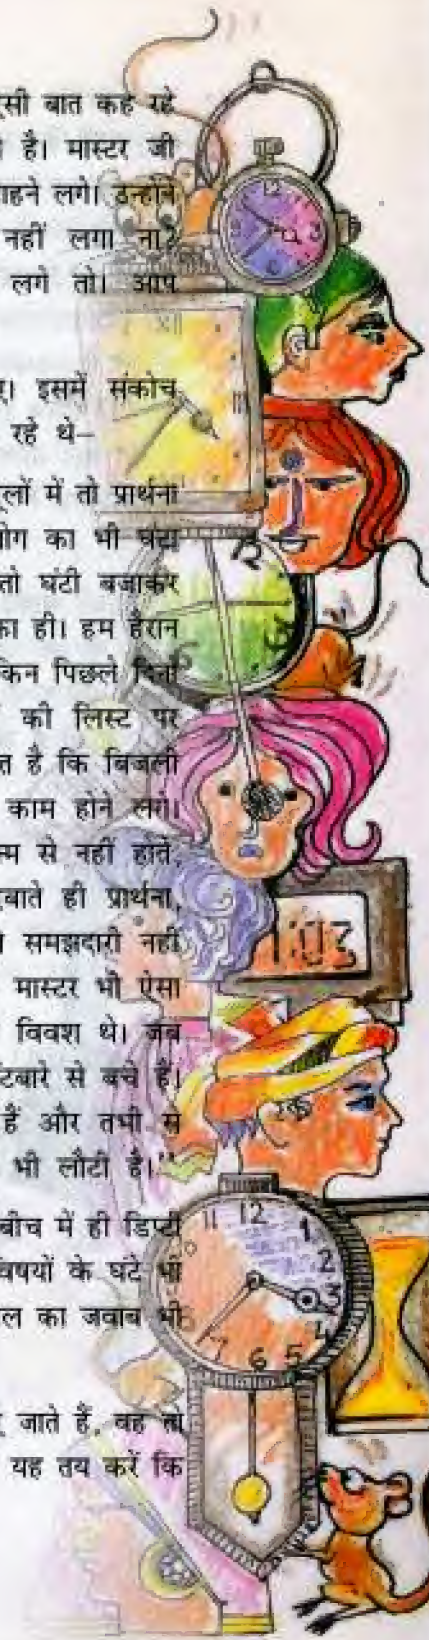 सी बात कह रहे
है। मास्टर जी
ाहने लगे। उन्होंने
नहीं लगा ना?
लगे तो। आप
इसमें संकोच
रहे थे–
लों में तो प्रार्थना
ोग का भी घंटा
तो घंटी बजाकर
का ही। हम हैरान
किन पिछले दिनों
की लिस्ट पर
त है कि बिजली
काम होने लगे।
म से नहीं होते,
बाते ही प्रार्थना,
समझदारी नहीं
मास्टर भी ऐसा
विवश थे। जब
टबारे से बचे हैं।
हैं और तभी से
भी लौटी है।''
बीच में ही डिप्टी
विषयों के घंटे भी
ल का जवाब भी
जाते हैं, वह तो
यह तय करें कि
12
3
XII
III
12
1:03
11 12 1
2
3
4
5
6
7